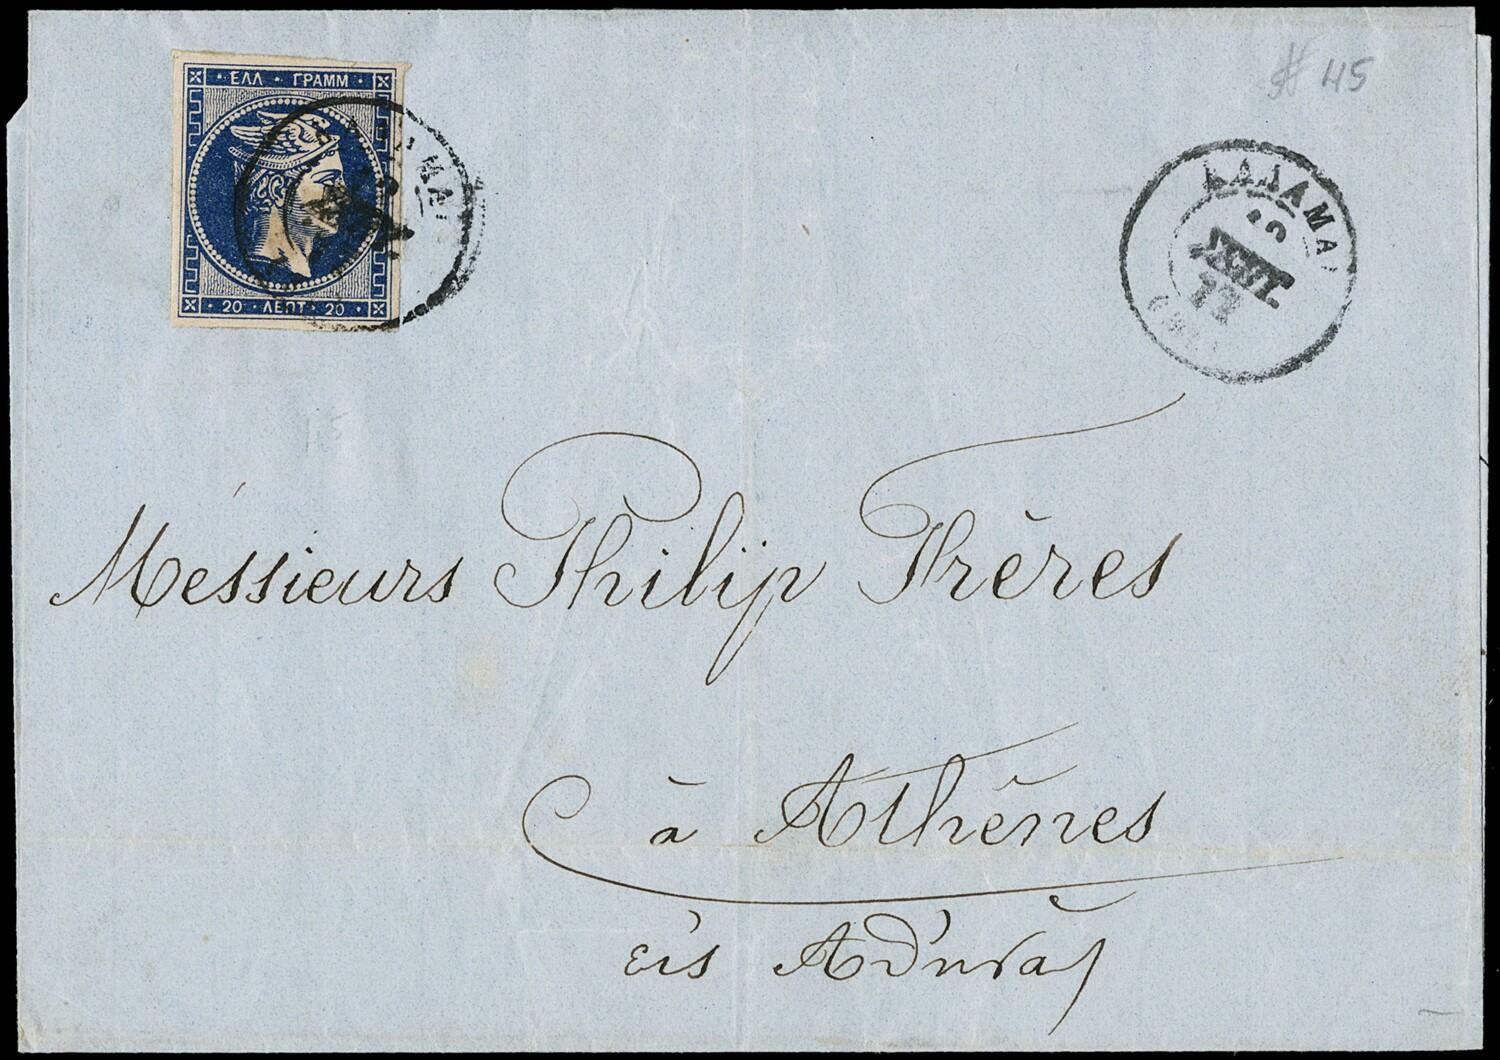 # 45
ΕΛΛ · ΓΡΑΜΜ
20 · ΛΕΠΤ · 20
ΚΑΛΑΜΑΙ
ΚΑΛΑΜΑΙ
Messieurs Philip Frères
à Athènes
εἰς Ἀθήνας